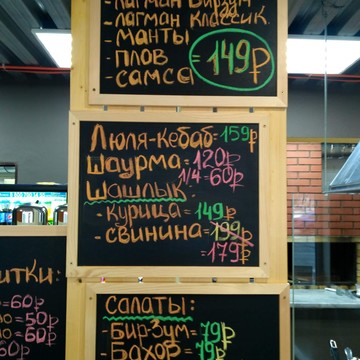 - ЛАГМАН
- ЛАГМАН КЛАССИК.
- МАНТЫ
- ПЛОВ
- САМСА
= 149₽
ЛЮЛЯ-КЕБАБ = 159₽
ШАУРМА = 120₽
1/4 = 60₽
ШАШЛЫК:
- КУРИЦА = 149₽
- СВИНИНА = 199₽
= 179₽
ИТКИ:
= 60₽
= 50₽
= 60₽
САЛАТЫ:
- БИР-ЗУМ = 79₽
- БАХОР = 79₽